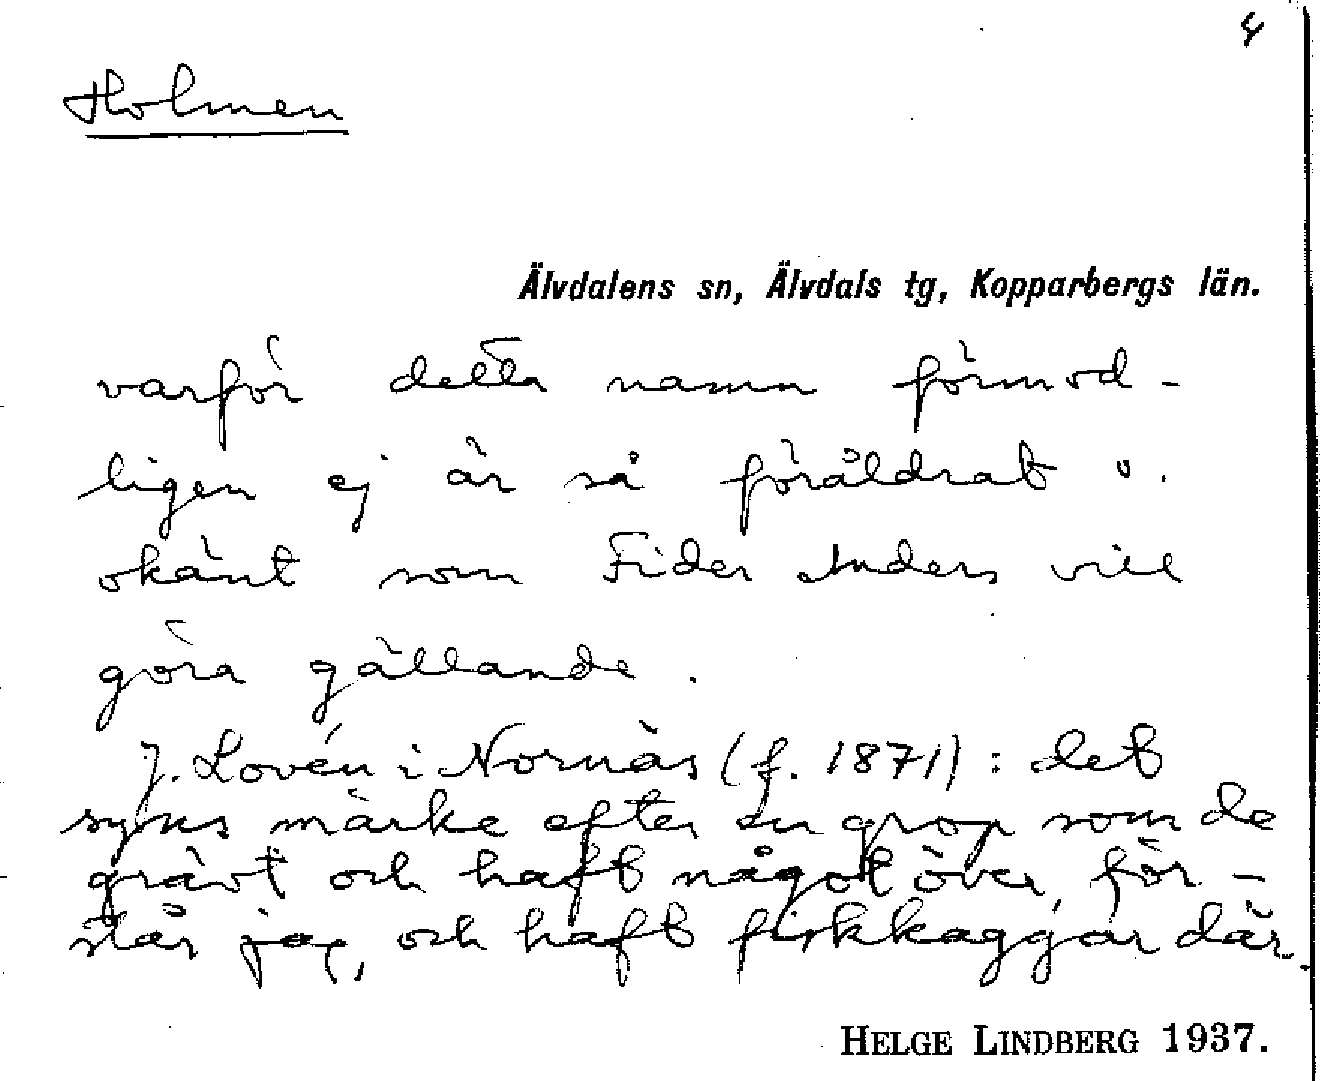 4
Holmen
Älvdalens sn, Älvdals tg, Kopparbergs län.
varför detta namn förmod-
ligen ej är så föråldrat o.
okänt som Fider Anders vill
göra gällande.
J. Lovén i Nornäs (f. 1871): det
syns märke efter en grop som de
grävt och haft något över, för-
står jag, och haft fiskkaggar där.
HELGE LINDBERG 1937.